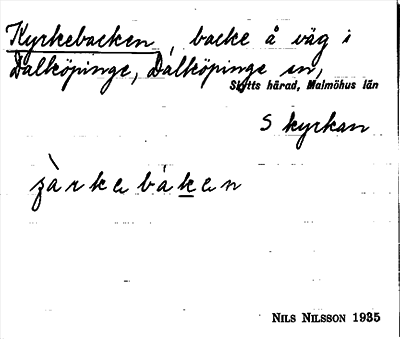 Kyrkebacken, backe å väg i
Dalköpinge, Dalköpinge sn,
Skytts härad, Malmöhus län
S kyrkan
NILS NILSSON 1935